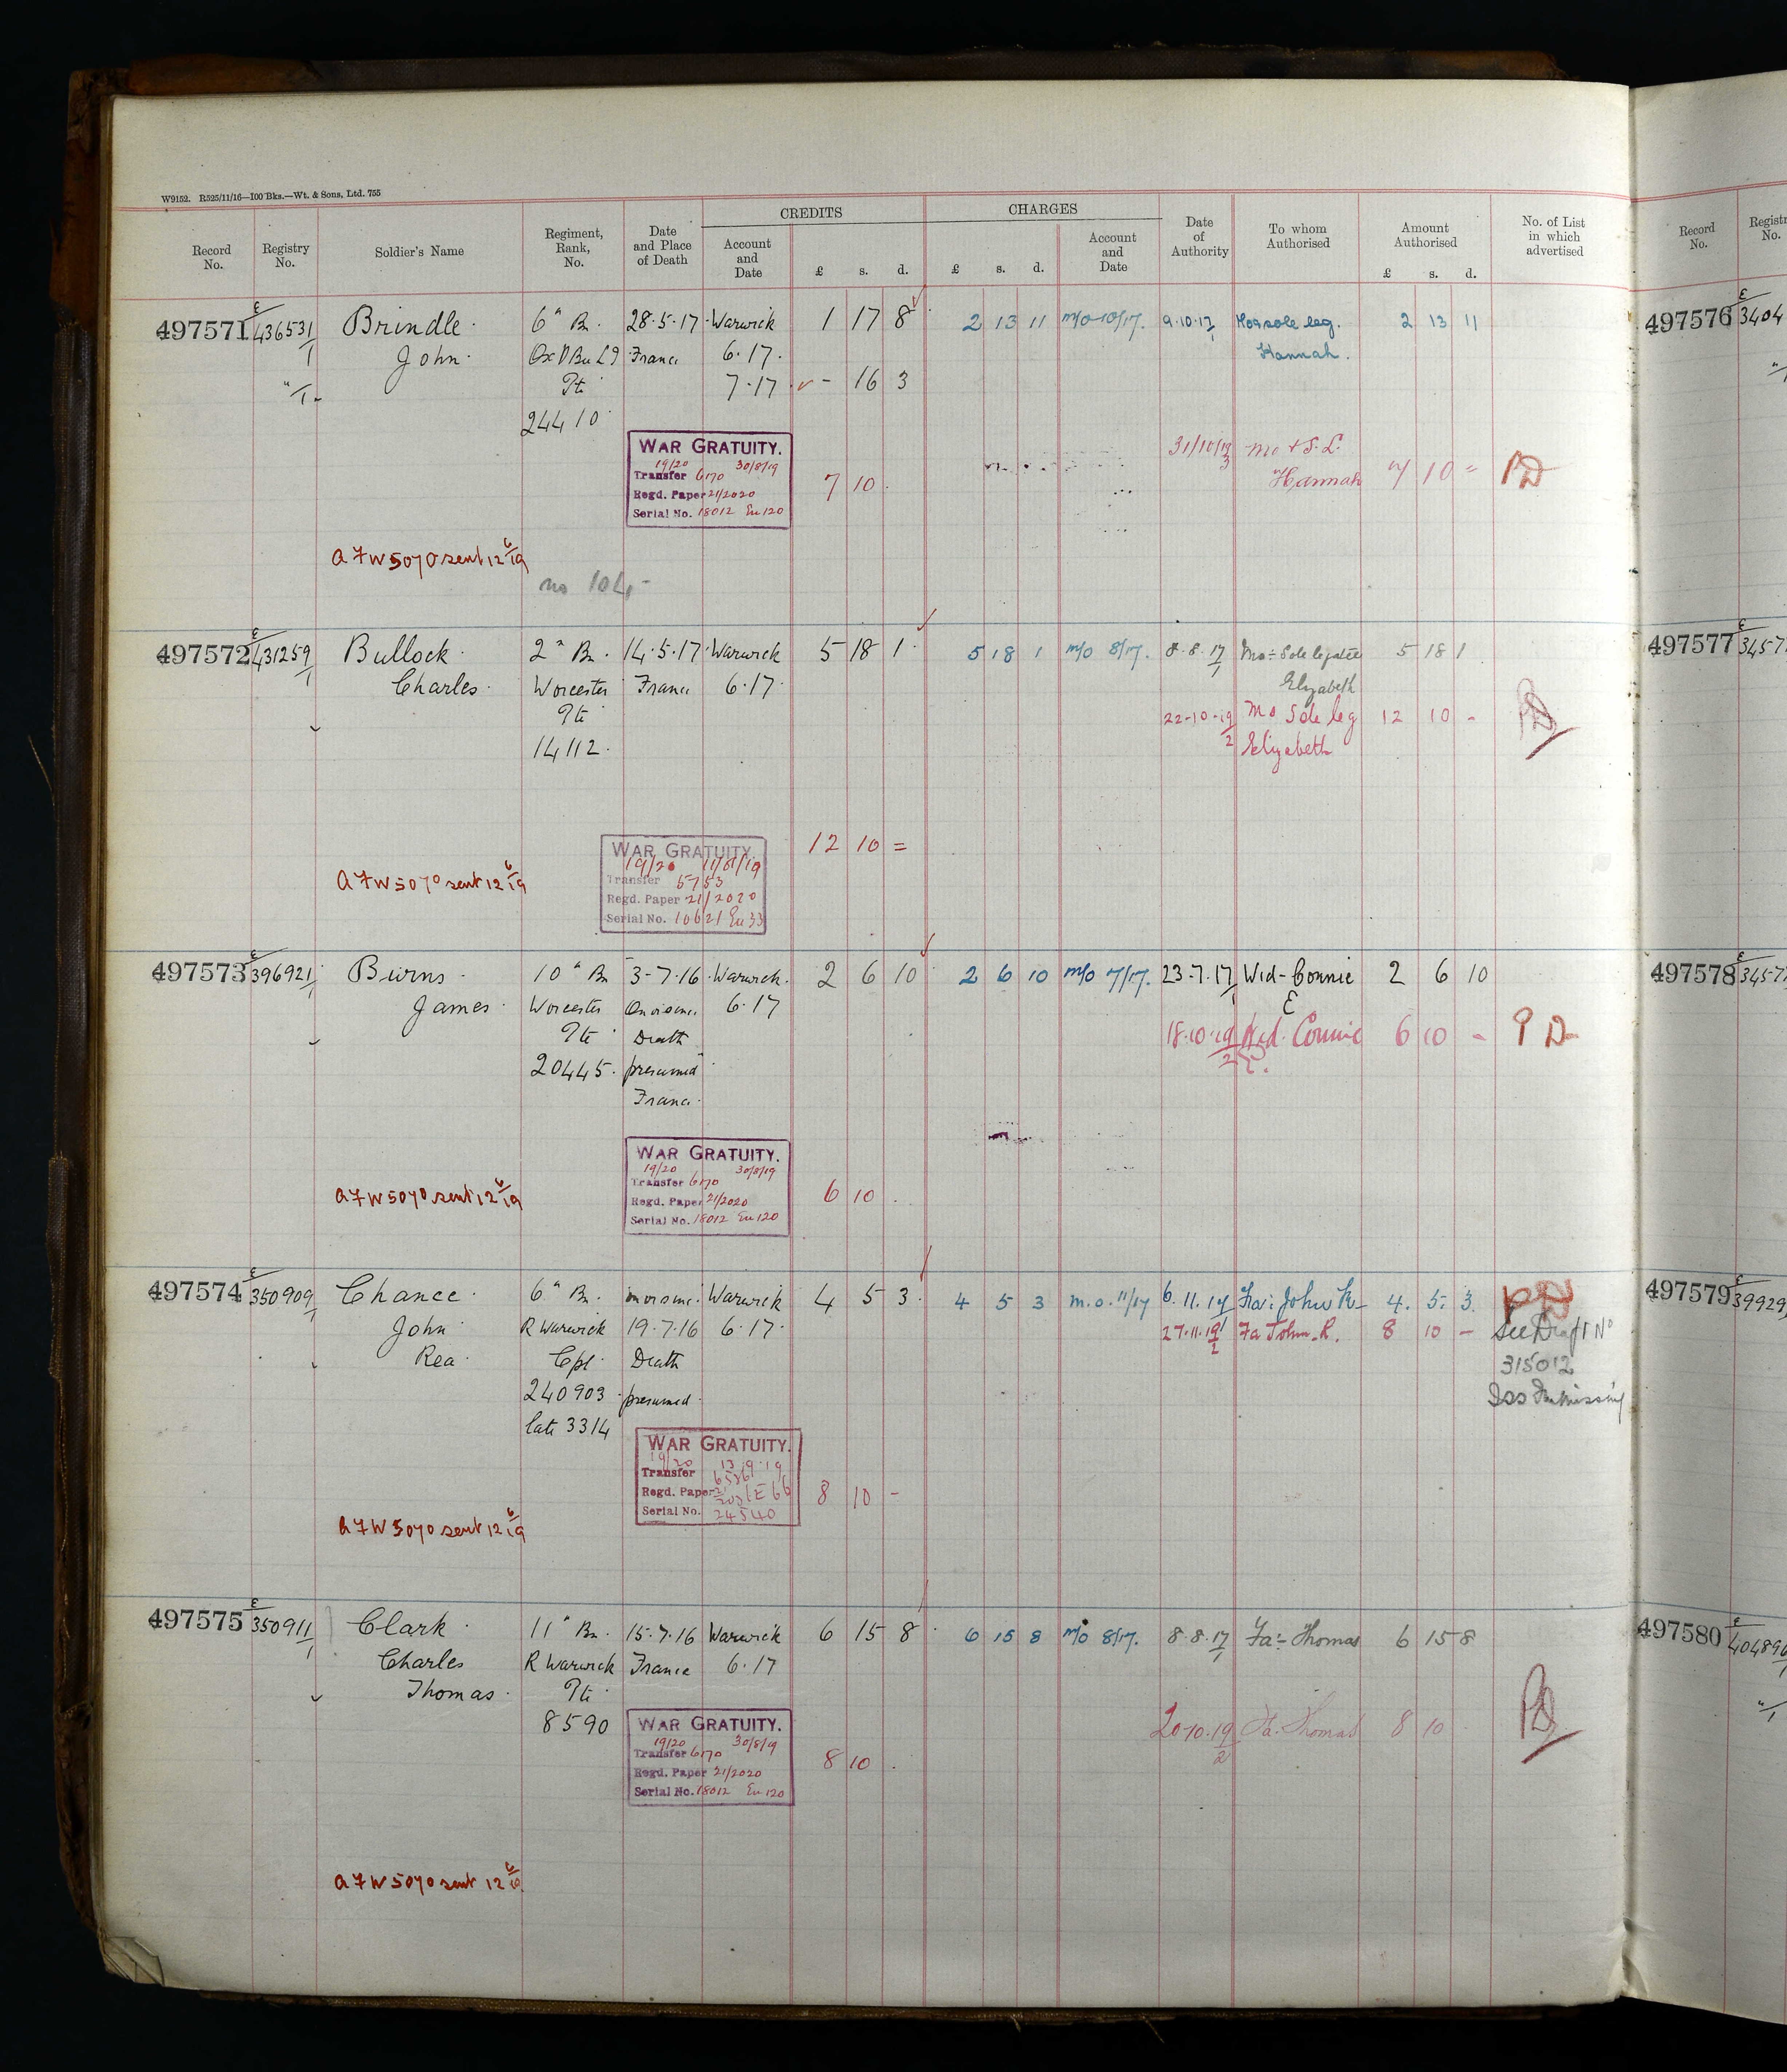 W9152. R525/11/16—100 Bks.—Wt. & Sons, Ltd. 755
CREDITS CHARGES
Record No. Registry No. Soldier's Name Regiment, Rank, No. Date and Place of Death Account and Date £ s. d. £ s. d. Account and Date Date of Authority To whom Authorised Amount Authorised £ s. d. No. of List in which advertised Record No.
497571 E/436531/1 Brindle 6th Bn. 28.5.17 Warwick 1 17 8 2 13 11 m/o 10/17. 9.10.17 Mo sole leg. 2 13 11 497576
John France 6.17. Hannah.
Pte 7.17 - 16 3
24410
WAR GRATUITY. 31/10/19 Mo & S.L.
19/20 30/8/19
Transfer 6170 7 10 Hannah 7 10 = PD
Regd. Paper 21/2020
Serial No. 18012 En 120
AFW5070 sent 12 6/19
no 104
497572 E/431259/1 Bullock 2n Bn. 14.5.17 Warwick 5 18 1 5 18 1 m/o 8/17. 8.8.17 Mo: Sole legatee 5 18 1 497577
Charles Worcester France 6.17 Elizabeth
Pte 22-10-19 Mo Sole leg 12 10 -
14112. Elizabeth
WAR GRATUITY 12 10 =
19/20
Transfer 5753
AFW5070 sent 12 6/19 Regd. Paper 21/2020
Serial No. 10621 En 33
497573 E/396921/1 Burns 10th Bn 3-7-16 Warwick. 2 6 10 2 6 10 m/o 7/17. 23-7-17 Wid-Connie 2 6 10 497578
James Worcester On or since 6.17 E
Pte Death 18.10.19 Wid. Connie 6 10 - PD
20445. presumed E.
France
WAR GRATUITY.
19/20 30/8/19
Transfer 6170
AFW5070 sent 12 6/19 Regd. Paper 21/2020 6 10
Serial No. 18012 En 120
497574 E/350909/1 Chance 6th Bn. on or since Warwick 4 5 3 4 5 3 m.o. 11/17 6.11.17 Fa: John R- 4. 5. 3. 497579
John R Warwick 19.7.16 6.17. 27.11.19 Fa John. R. 8 10 - See Draft No
Rea Cpl. Death 315012
240903 presumed
late 3314
WAR GRATUITY.
19/20 13.9.19
Transfer
Regd. Paper 8 10 -
Serial No. 24540
AFW5070 sent 12 6/19
497575 E/350911/1 Clark 11th Bn. 15.7.16 Warwick 6 15 8 6 15 8 m/o 8/17. 8.8.17 Fa:- Thomas 6 15 8 497580
Charles R Warwick France 6.17
Thomas Pte
8590 WAR GRATUITY. 20.10.19 Fa. Thomas 8 10
19/20 30/8/19
Transfer 6170 8 10
Regd. Paper 21/2020
Serial No. 18012 En 120
AFW5070 sent 12 6/19